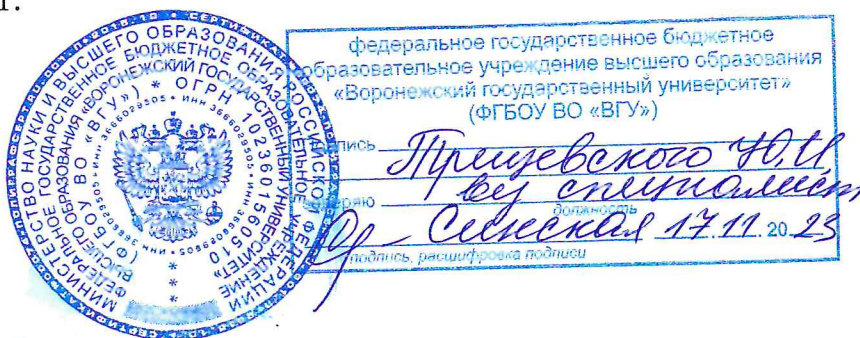 г.
МИНИСТЕРСТВО НАУКИ И ВЫСШЕГО ОБРАЗОВАНИЯ РОССИЙСКОЙ ФЕДЕРАЦИИ
ФЕДЕРАЛЬНОЕ ГОСУДАРСТВЕННОЕ БЮДЖЕТНОЕ ОБРАЗОВАТЕЛЬНОЕ УЧРЕЖДЕНИЕ
ВЫСШЕГО ОБРАЗОВАНИЯ «ВОРОНЕЖСКИЙ ГОСУДАРСТВЕННЫЙ УНИВЕРСИТЕТ»
(ФГБОУ ВО «ВГУ») * ОГРН 1023601560510 * * *
ИНН 3666029505
федеральное государственное бюджетное
образовательное учреждение высшего образования
«Воронежский государственный университет»
(ФГБОУ ВО «ВГУ»)
пись Трещевского Ю.И
еряю вед специалист
должность
Синская 17.11.2023
подпись, расшифровка подписи